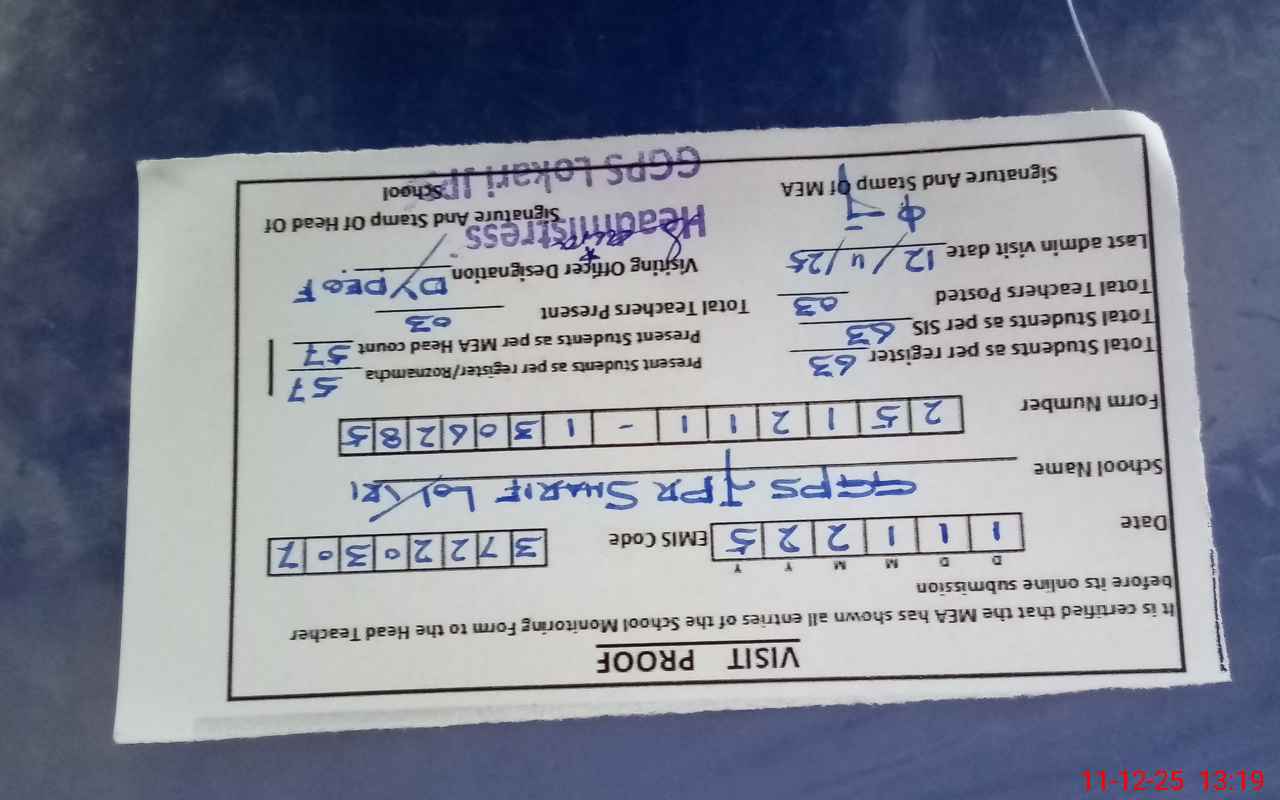 VISIT PROOF
It is certified that the MEA has shown all entries of the School Monitoring Form to the Head Teacher
before its online submission
D D M M Y Y
Date 1 1 1 2 2 5 EMIS Code 3 7 2 2 0 3 0 7
School Name GGPS JPR SHARIF LOKRI
Form Number 2 5 1 2 1 1 - 1 3 0 6 2 8 5
Total Students as per register 63 Present Students as per register/Roznamcha 57
Total Students as per SIS 63 Present Students as per MEA Head count 57
Total Teachers Posted 03 Total Teachers Present 03
Last admin visit date 12/4/25 Visiting Officer Designation DYDEOF
Headmistress
Signature And Stamp Of MEA Signature And Stamp Of Head Of
School
GGPS Lokari JP
11-12-25 13:19